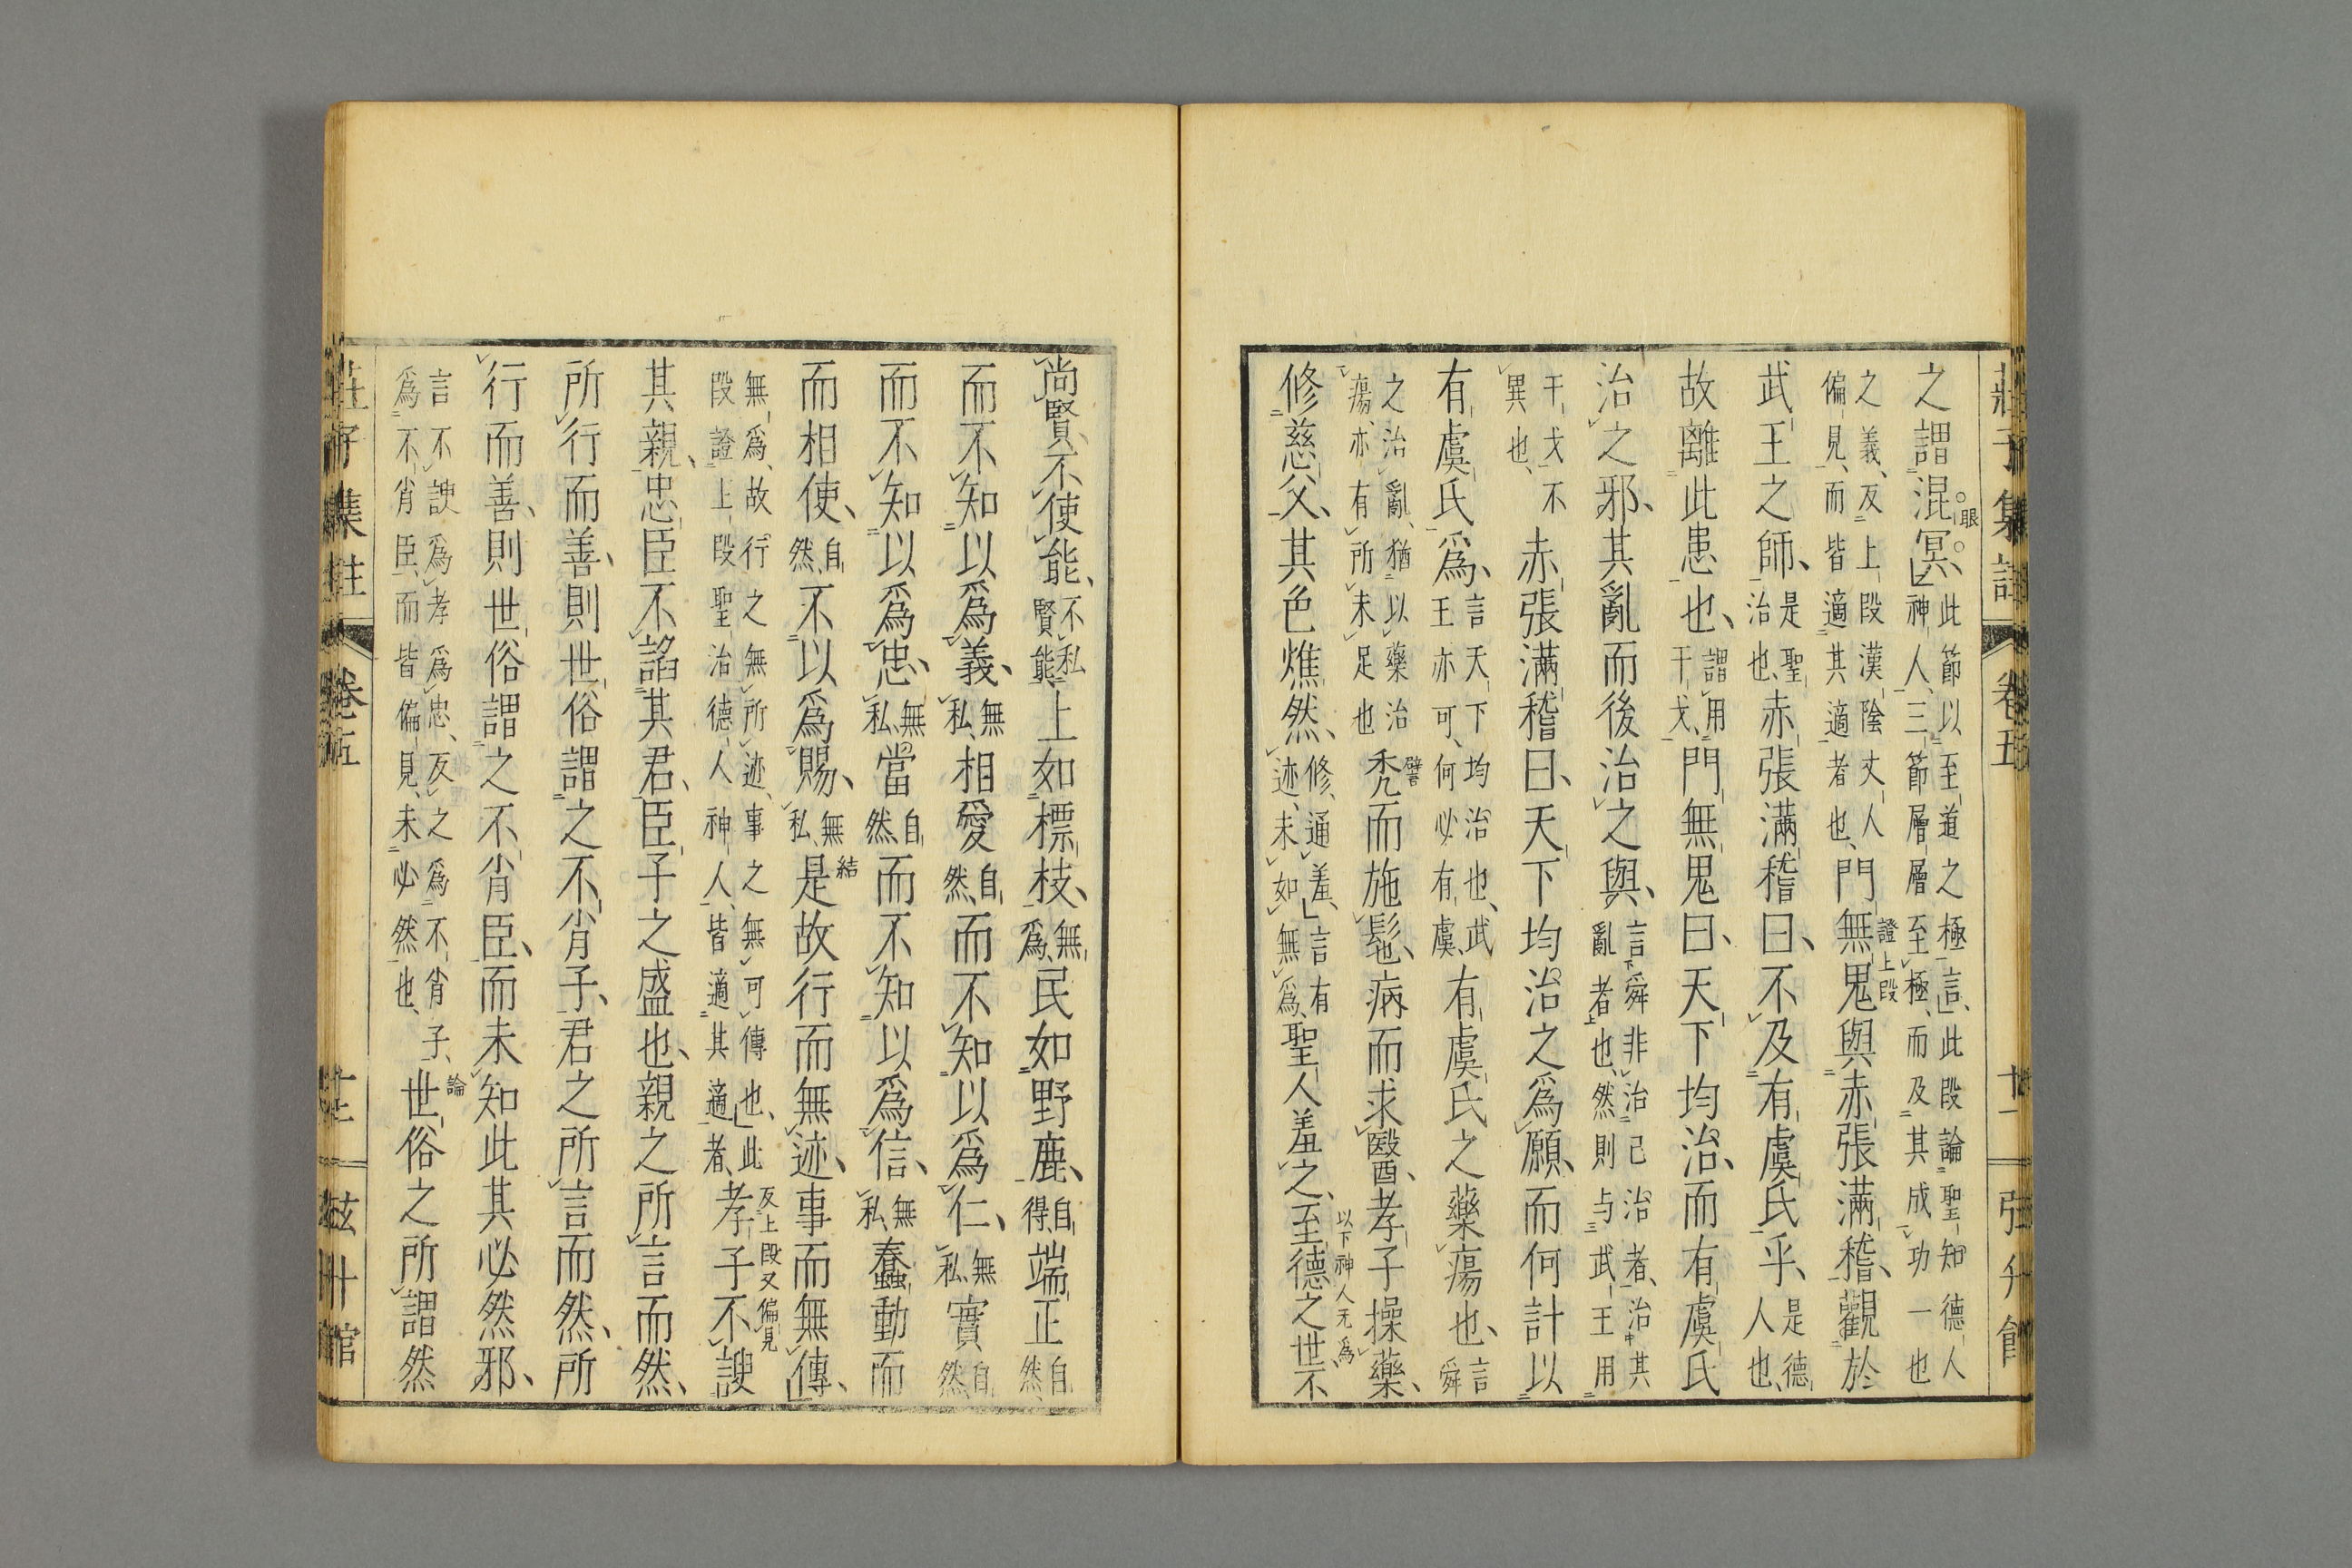 莊子集註 卷五 廿一 弢廾館
之謂混冥、此節以至道之極言、此段論聖知德人神人、三節層層至極、而及其成功一也
眼
之義、反上段漢陰丈人偏見、而皆適其適者也、門無鬼與赤張滿稽、觀於
證上段
武王之師、是聖治也、赤張滿稽曰、不及有虞氏乎、是德人也、
故離此患也、謂用干戈、門無鬼曰、天下均治、而有虞氏
治之邪、其亂而後治之與、言舜非治已治者、治其亂者也、然則与武王用
干戈不異也、赤張滿稽曰、天下均治之爲願、而何計以
有虞氏爲、言天下均治也、武王亦可、何必有虞、有虞氏之藥瘍也、言舜
之治亂、猶以藥治瘍、亦有所未足也 禿而施髢、病而求醫、孝子操藥、
譬
修慈父、其色燋然、修、通羞、言有迹、未如無爲、聖人羞之、至德之世、不
以下神人无爲
尚賢、不使能、不私賢能、上如標枝、無爲、民如野鹿、自得、端正自然、
而不知以爲義、無私、相愛自然、而不知以爲仁、無私、實自然、
而不知以爲忠、無私、當自然、而不知以爲信、無私、蠢動而
而相使、自然、不以爲賜、無私、是故行而無迹、事而無傳、
結
無爲、故行之無所迹、事之無可傳也、此段證上段聖治德人神人、皆適其適者、孝子不諛
反上段又偏見
其親、忠臣不諂其君、臣子之盛也、親之所言而然、
所行而善、則世俗謂之不肖子、君之所言而然、所
行而善、則世俗謂之不肖臣、而未知此其必然邪、
言不諛爲孝爲忠、反之爲不肖子、爲不肖臣、而皆偏見、未必然也、世俗之所謂然
論
莊子集註 卷五 弢廾館